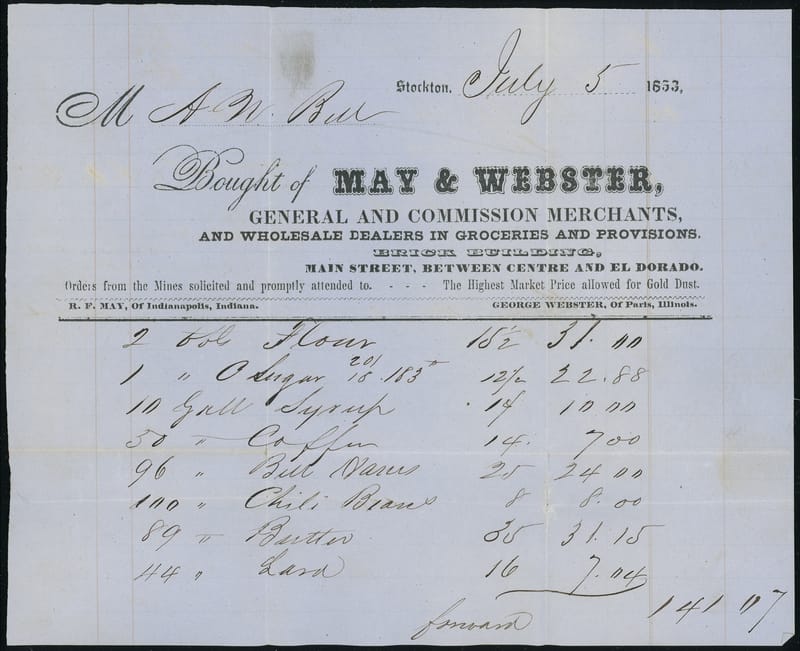 Stockton, July 5 1853,
M A W. Bell
Bought of MAY & WEBSTER,
GENERAL AND COMMISSION MERCHANTS,
AND WHOLESALE DEALERS IN GROCERIES AND PROVISIONS.
BRICK BUILDING,
MAIN STREET, BETWEEN CENTRE AND EL DORADO.
Orders from the Mines solicited and promptly attended to. - - - The Highest Market Price allowed for Gold Dust.
R. F. MAY, Of Indianapolis, Indiana. GEORGE WEBSTER, Of Paris, Illinois.
2 bbl Flour 15½ 31.00
1 " C Sugar 201 18 183 12½ 22.88
10 Gall Syrup 10 00
50 " Coffee 14. 7 00
96 " Bell 25 24 00
100 " Chili Beans 8 8.00
89 " Butter 35 31.15
44 " Lard 16 7.04
forward 141 07